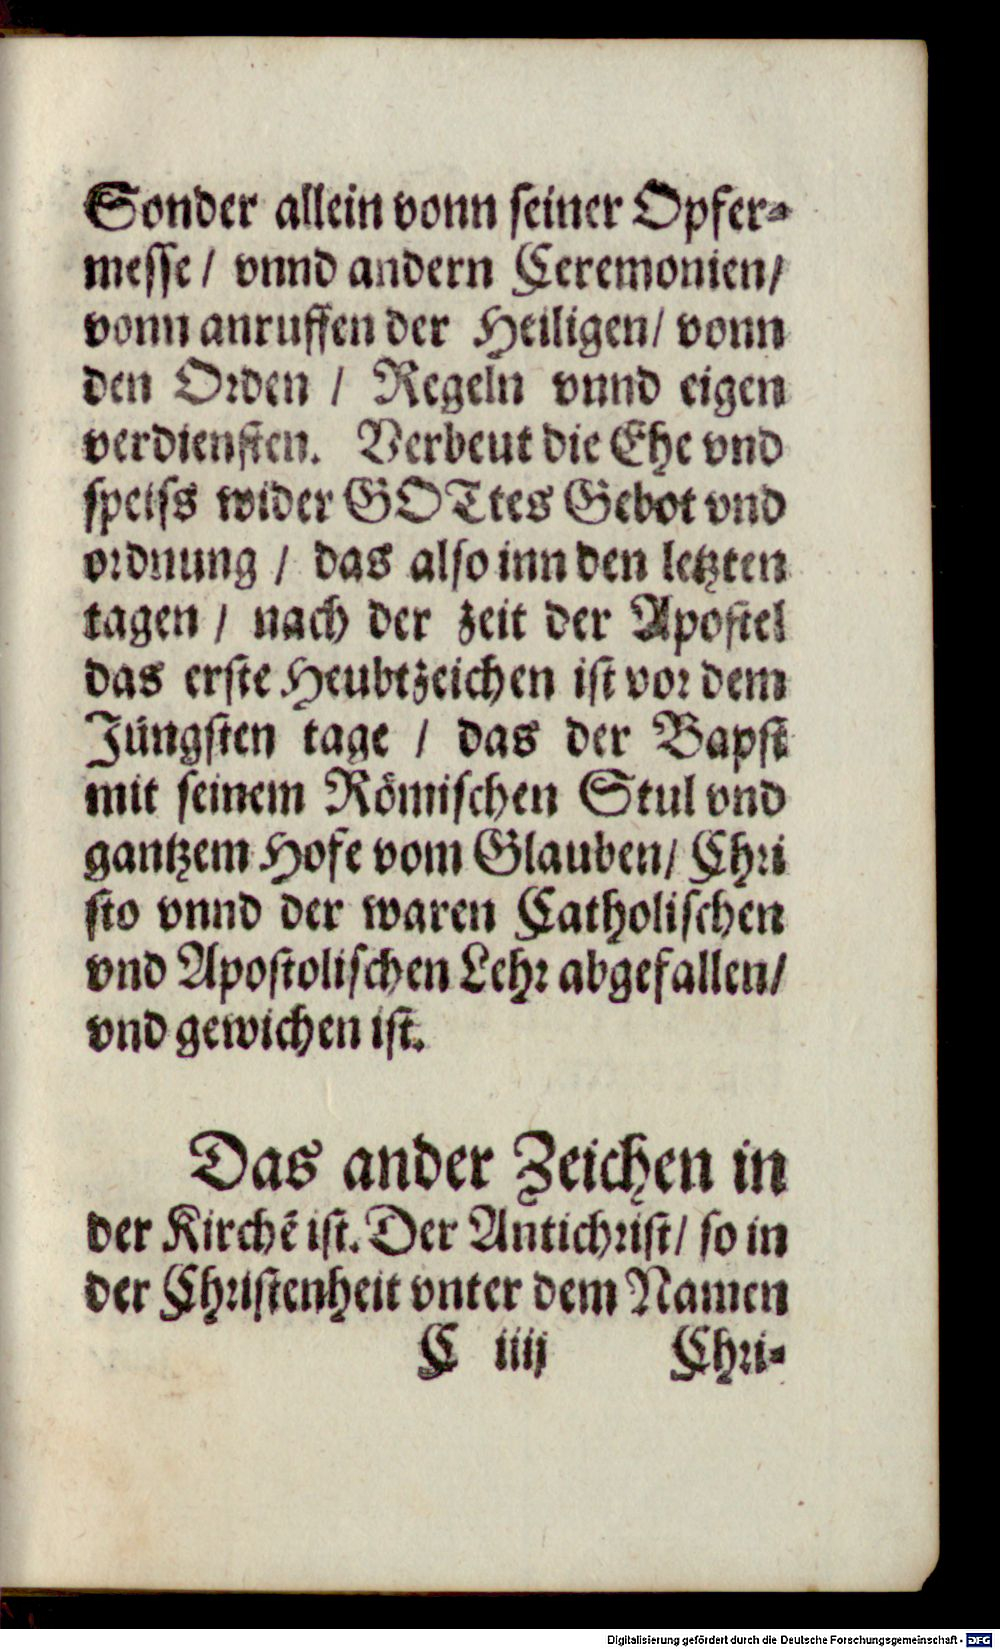 Sonder allein vonn seiner Opfer-
messe / vnnd andern Ceremonien/
vonn anruffen der Heiligen/ vonn
den Orden / Regeln vnnd eigen
verdiensten. Verbeut die Ehe vnd
speiss wider GOTtes Gebot vnd
ordnung / das also inn den letzten
tagen / nach der zeit der Apostel
das erste Heubtzeichen ist vor dem
Jüngsten tage / das der Bapst
mit seinem Römischen Stul vnd
gantzem Hofe vom Glauben/ Chri
sto vnnd der waren Catholischen
vnd Apostolischen Lehr abgefallen/
vnd gewichen ist.
Das ander Zeichen in
der Kirchē ist. Der Antichrist/ so in
der Christenheit vnter dem Namen
C iiij Chri-
Digitalisierung gefördert durch die Deutsche Forschungsgemeinschaft - DFG